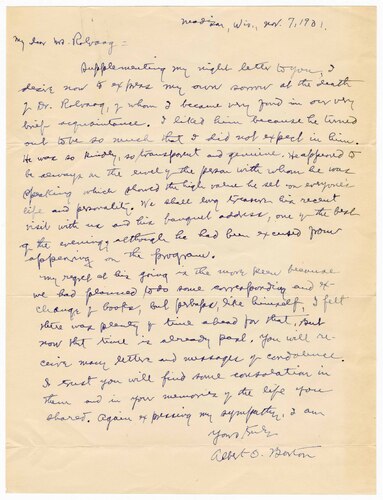 Madison, Wis., Nov. 7, 1931.
My dear Mrs. Rolvaag =
Supplementing my night letter to you, I
desire now to express my own sorrow at the death
of Dr. Rolvaag, of whom I became very fond in our very
brief acquaintance. I liked him because he turned
out to be so much that I did not expect in him.
He was so kindly, so transparent and genuine. He happened to
be always on the level of the person with whom he was
speaking which showed the high value he set on everyone's
life and personality. We shall long treasure his recent
visit with us and his banquet address, one of the best
of the evening, although he had been excused from
appearing on the program.
My regret at his going is the more keen because
we had planned to do some corresponding and ex-
change of books, but perhaps, like himself, I felt
there was plenty of time ahead for that. But
now that time is already past. You will re-
ceive many letters and messages of condolence.
I trust you will find some consolation in
them and in your memories of the life you
shared. Again expressing my sympathy, I am
Yours truly,
Albert O. Barton